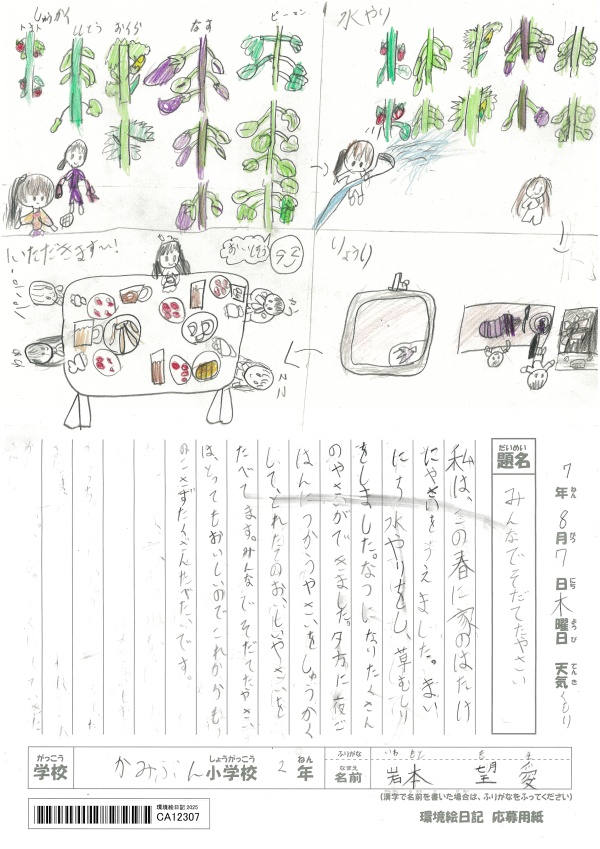 しゅうかく
トマト
ししとう
おくら
なす
ピーマン
水やり
いただきま す～!
おいしそう
りょうり
7年ねん8月がつ7日にち木曜日ようび 天気てんきくもり
だいめい
題名
みんなでそだてたやさい
私は、この春に家のはたけ
にやさいをうえました。まい
にち水やりをし、草むしり
をしました。なつになりたくさん
のやさいができました。夕方に夜ご
はんにつかうやさいをしゅうかく
して、とれたてのおいしいやさいを
たべてます。みんなでそだてたやさい
は、とってもおいしいのでこれからも
のこさずたくさんたべたいです。
がっこう
学校
かみぶん
しょうがっこう
小学校
2
ねん
年
ふりがな
なまえ
名前
いわ もと
岩本 望愛
(漢字で名前を書いた場合は、ふりがなをふってください)
環境絵日記 2025
CA12307
環境絵日記 応募用紙